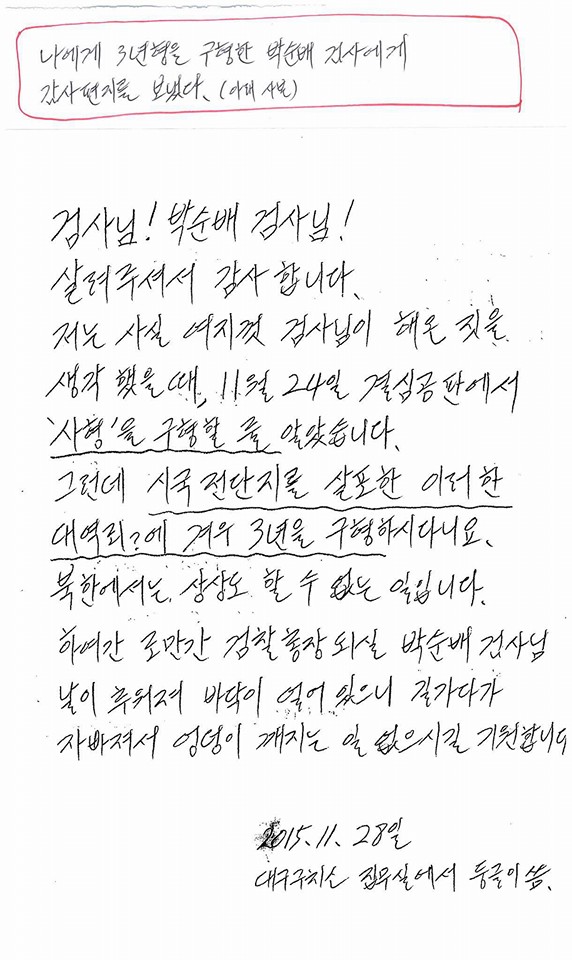 나에게 3년형을 구형한 박순배 검사에게
감사편지를 보냈다. (아래 사본)
검사님! 박순배 검사님!
살려주셔서 감사 합니다.
저는 사실 여지껏 검사님이 해온 짓을
생각 했을때, 11월 24일 결심공판에서
'사형'을 구형할 줄 알았습니다.
그런데 시국전단지를 살포한 이러한
대역죄?에 겨우 3년을 구형하시다니요.
북한에서는 상상도 할 수 없는 일입니다.
하여간 조만간 검찰총장 되실 박순배 검사님
날이 추워져 바닥이 얼어 있으니 길가다가
자빠져서 엉덩이 깨지는 일 없으시길 기원합니다
2015.11.28일
대구구치소 집무실에서 둥글이 씀.